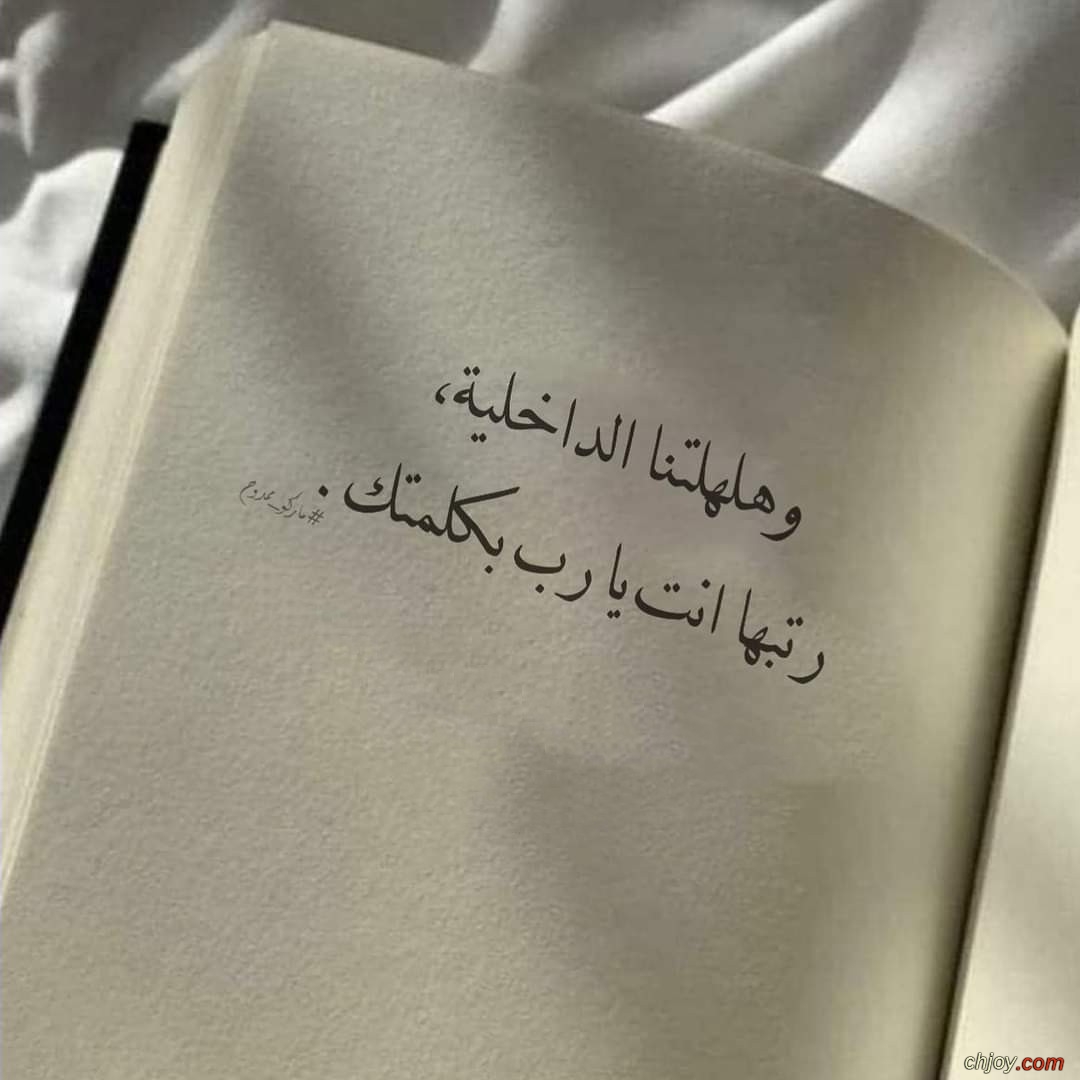 وهلهلتنا الداخلية،
رتبها انت يا رب بكلمتك.
#ماركو_ممدوح
chjoy.com